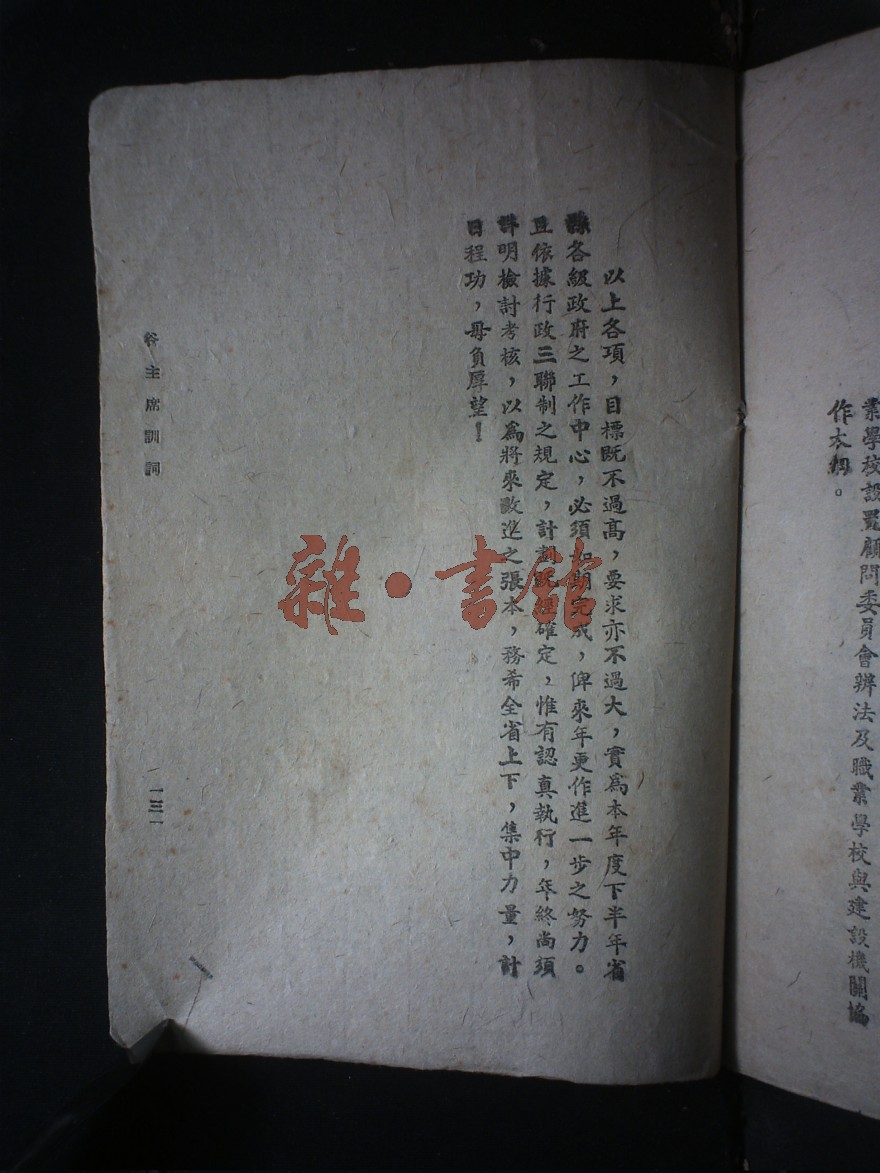 業學校設置顧問委員會辦法及職業學校與建設機關協
作大綱。
以上各項，目標既不過高，要求亦不過大，實爲本年度下半年省
縣各級政府之工作中心，必須如期完成，俾來年更作進一步之努力。
且依據行政三聯制之規定，計劃既經確定，惟有認真執行，年終尚須
詳明檢討考核，以爲將來改進之張本，務希全省上下，集中力量，計
日程功，毋負厚望！
谷主席訓詞
一三一
雜·書館